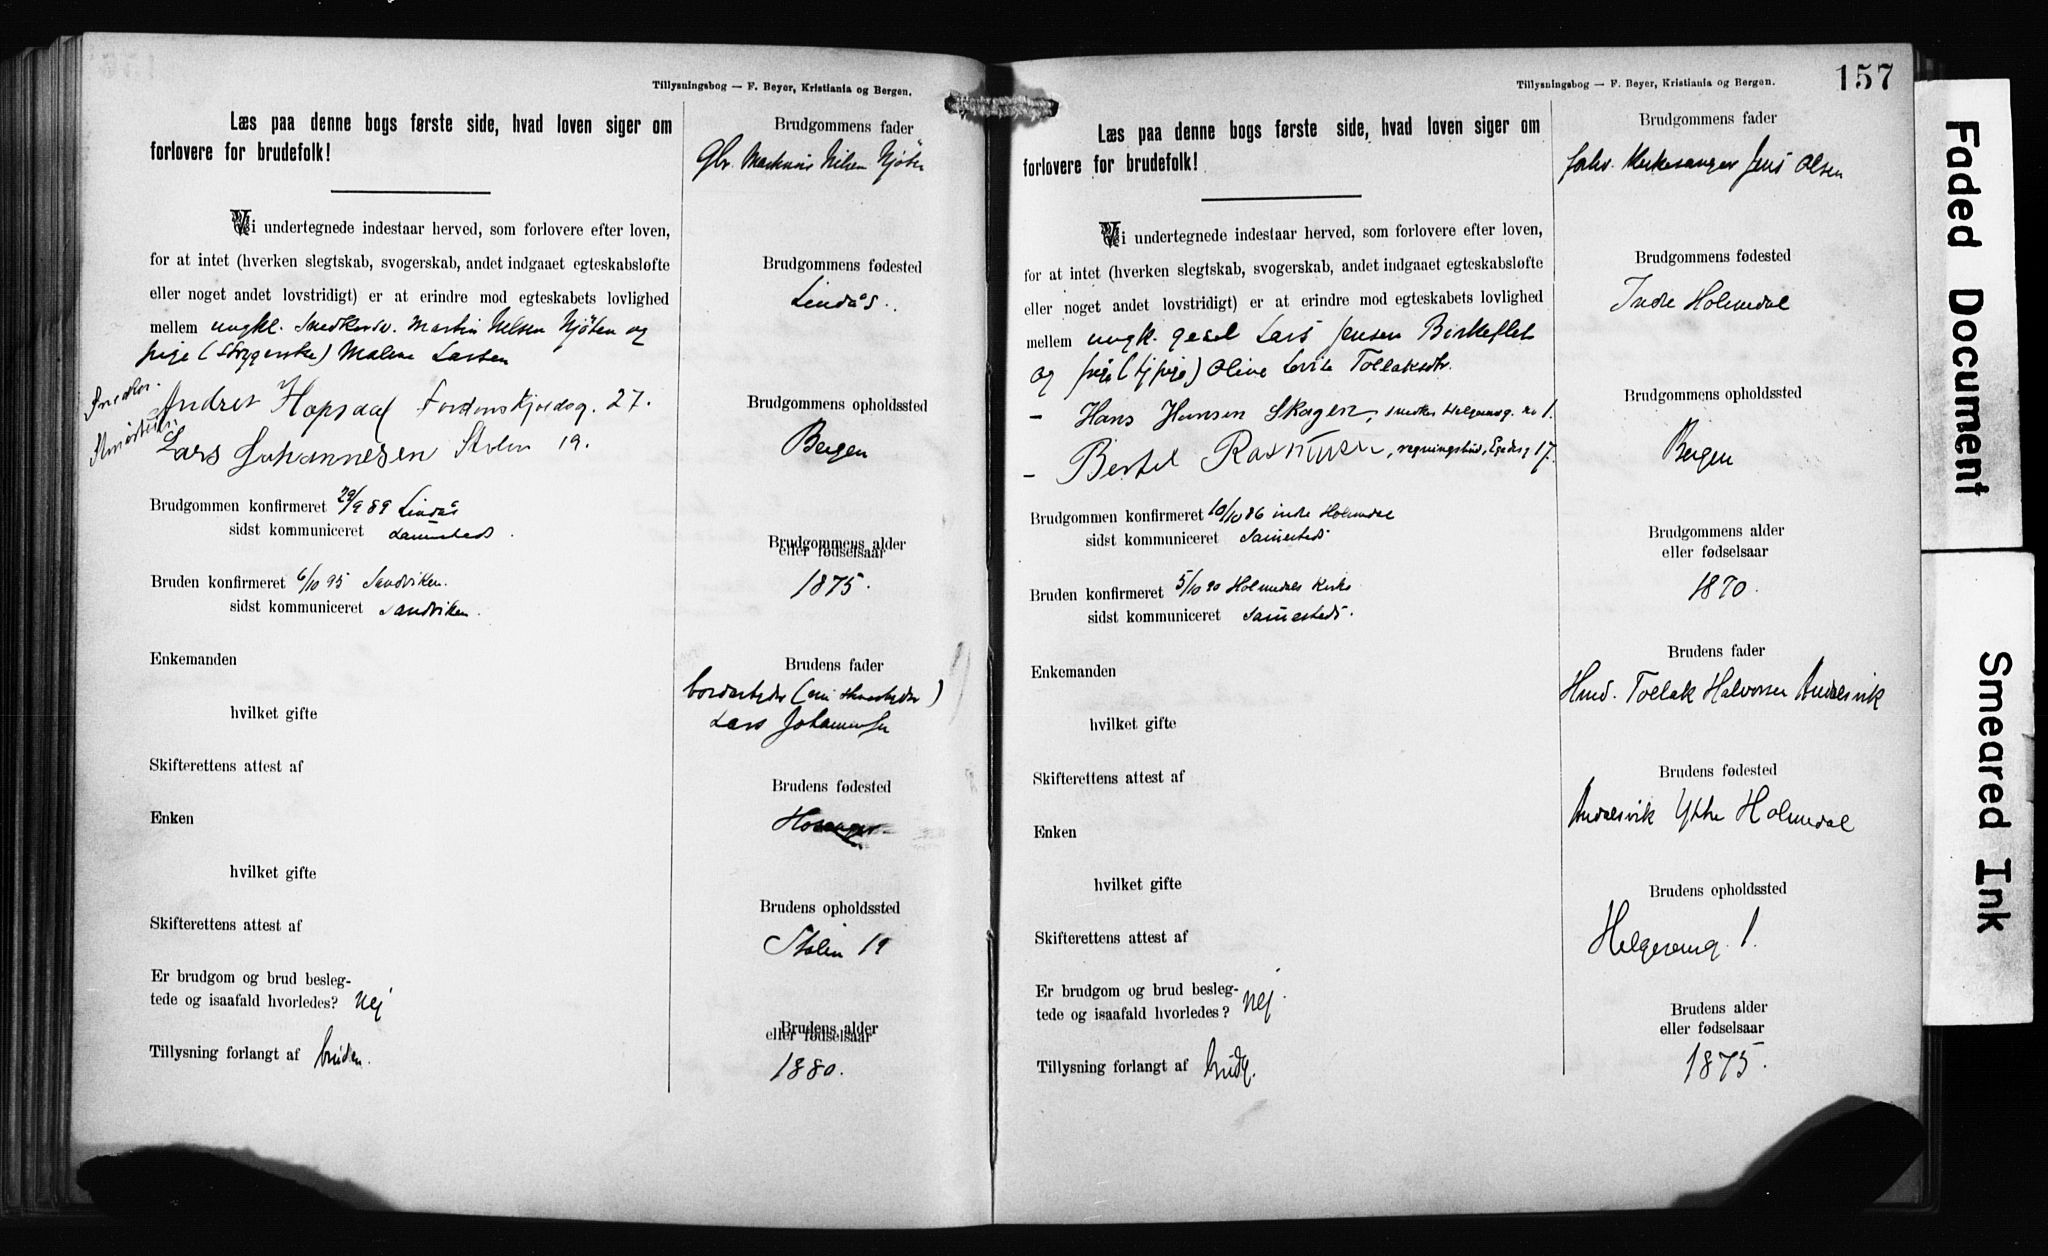 Tillysningsbog — F. Beyer, Kristiania og Bergen.
Læs paa denne bogs første side, hvad loven siger om
forlovere for brudefolk!
Vi undertegnede indestaar herved, som forlovere efter loven,
for at intet (hverken slegtskab, svogerskab, andet indgaaet egteskabsløfte
eller noget andet lovstridigt) er at erindre mod egteskabets lovlighed
mellem ungkl. Snedkersv. Martin Nilsen Njøten og
pige (Strygerske) Malene Larsen
Snedker. Andres Hopsdal Tordenskjoldsg. 27.
Lars Johannesen Stølen 19.
Brudgommen konfirmeret 29/9 89 Lindås
sidst kommuniceret sammesteds.
Bruden konfirmeret 6/10 95 Sandviken.
sidst kommuniceret Sandviken.
Enkemanden
hvilket gifte
Skifterettens attest af
Enken
hvilket gifte
Skifterettens attest af
Er brudgom og brud besleg-
tede og isaafald hvorledes? Nej
Tillysning forlangt af bruden.
Brudgommens fader
Gbr. Markus Nilsen Njøten
Brudgommens fødested
Lindås.
Brudgommens opholdssted
Bergen
Brudgommens alder
eller fødselsaar
1875.
Brudens fader
Lars Johannesen
Brudens fødested
Hosanger
Brudens opholdssted
Stølen 19
Brudens alder
eller fødselsaar
1880.
Tillysningsbog — F. Beyer, Kristiania og Bergen.
157
Læs paa denne bogs første side, hvad loven siger om
forlovere for brudefolk!
Vi undertegnede indestaar herved, som forlovere efter loven,
for at intet (hverken slegtskab, svogerskab, andet indgaaet egteskabsløfte
eller noget andet lovstridigt) er at erindre mod egteskabets lovlighed
mellem ungk. gesel Lars Jensen Birkeflet
og pige (tj.pige) Oline Lovise Tollaksdtr.
– Hans Hansen Skagen, snedker Helgesensg. no 1.
– Bertel Rasmussen, regningsbud, Egedesg 17.
Brudgommen konfirmeret 10/10 86 indre Holmedal
sidst kommuniceret Sammesteds
Bruden konfirmeret 5/10 90 Holmedals Kirke
sidst kommuniceret Sammesteds.
Enkemanden
hvilket gifte
Skifterettens attest af
Enken
hvilket gifte
Skifterettens attest af
Er brudgom og brud besleg-
tede og isaafald hvorledes? Nej.
Tillysning forlangt af brudg.
Brudgommens fader
forhv. Kirkesanger Jens Olsen
Brudgommens fødested
Indre Holmedal
Brudgommens opholdssted
Bergen
Brudgommens alder
eller fødselsaar
1870.
Brudens fader
Husd. Tollak Halvorsen Andalsvik
Brudens fødested
Andalsvik Ytre Holmedal
Brudens opholdssted
Helgesensg. 1.
Brudens alder
eller fødselsaar
1875.
Faded Document
Smeared Ink